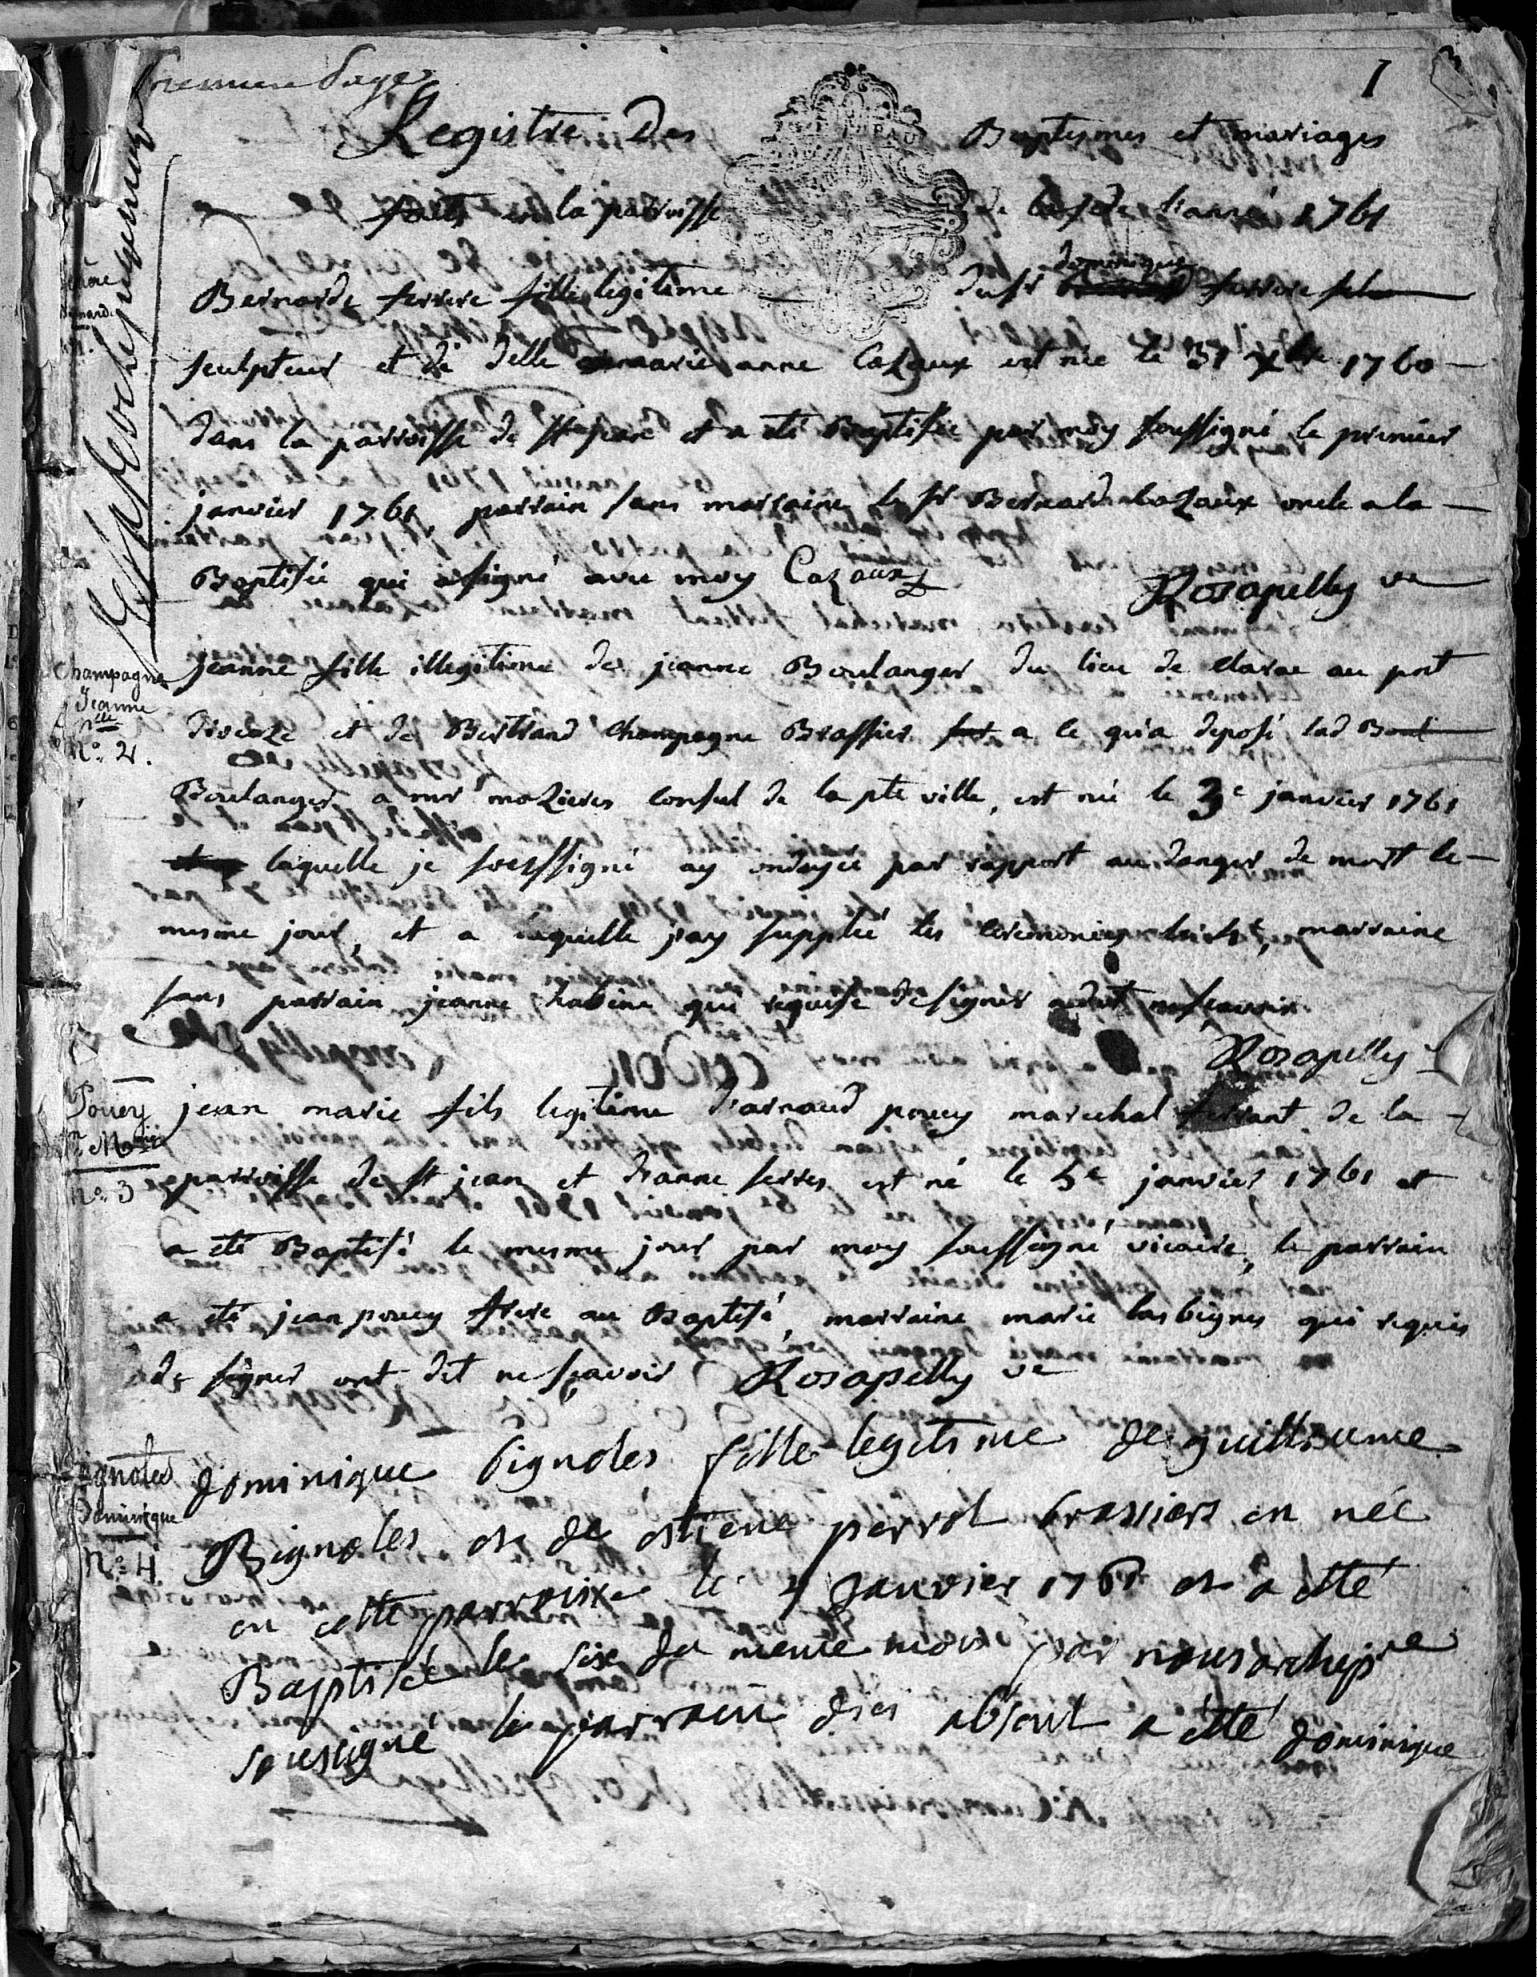 premiere page
1
Registre des Baptesmes et mariages
faits en la parroisse de l'année 1761
Bernarde ferrere fille legitime du sr dominique ferrere
sculpteur et de delle marie anne Cazaux est née le 31 xbre 1760
dans la parroisse de st jean et a eté Baptisée par moy soussigné le premier
janvier 1761, parrain sans marraine le sr Bernard Cazaux oncle a la
Baptisée qui a signé avec moy Cazaux Rosapelly vre
Champagne
Jeanne
N° 2.
jeanne fille illegitime de jeanne Boulanger du lieu de clarac au port
et de Bertrand Champagne Brassier a ce qu'a deposé lad
Boulanger a mr mozieres consul de la pte ville, est née le 3e janvier 1761
laquelle je soussigné ay ondoyée par rapport au danger de mort le
mesme jour, et a laquelle j'ay supplée les ceremonies marraine
sans parrain jeanne qui requise de signer a dit ne scavoir
Rosapelly
Pouey
Jn Marie
n° 3
jean marie fils legitime d'arnaud pouey marechal ferrant de la
parroisse de st jean et d'anne serres est né le 5e janvier 1761 et
a eté Baptisé le mesme jour par moy soussigné vicaire, le parrain
a eté jean pouey frere au Baptisé, marraine marie lasbeignes qui requis
de signer ont dit ne scavoir Rosapelly vre
Bignoles
Dominique
N° 4.
dominique Bignoles fille legitime de guillaume
Bignoles et de perrot brassiers en née
en cette parroixe le janvier 1761 et a etté
Baptisée le six du meme mois par nous archipre
sousigné le parrain absent a etté dominique